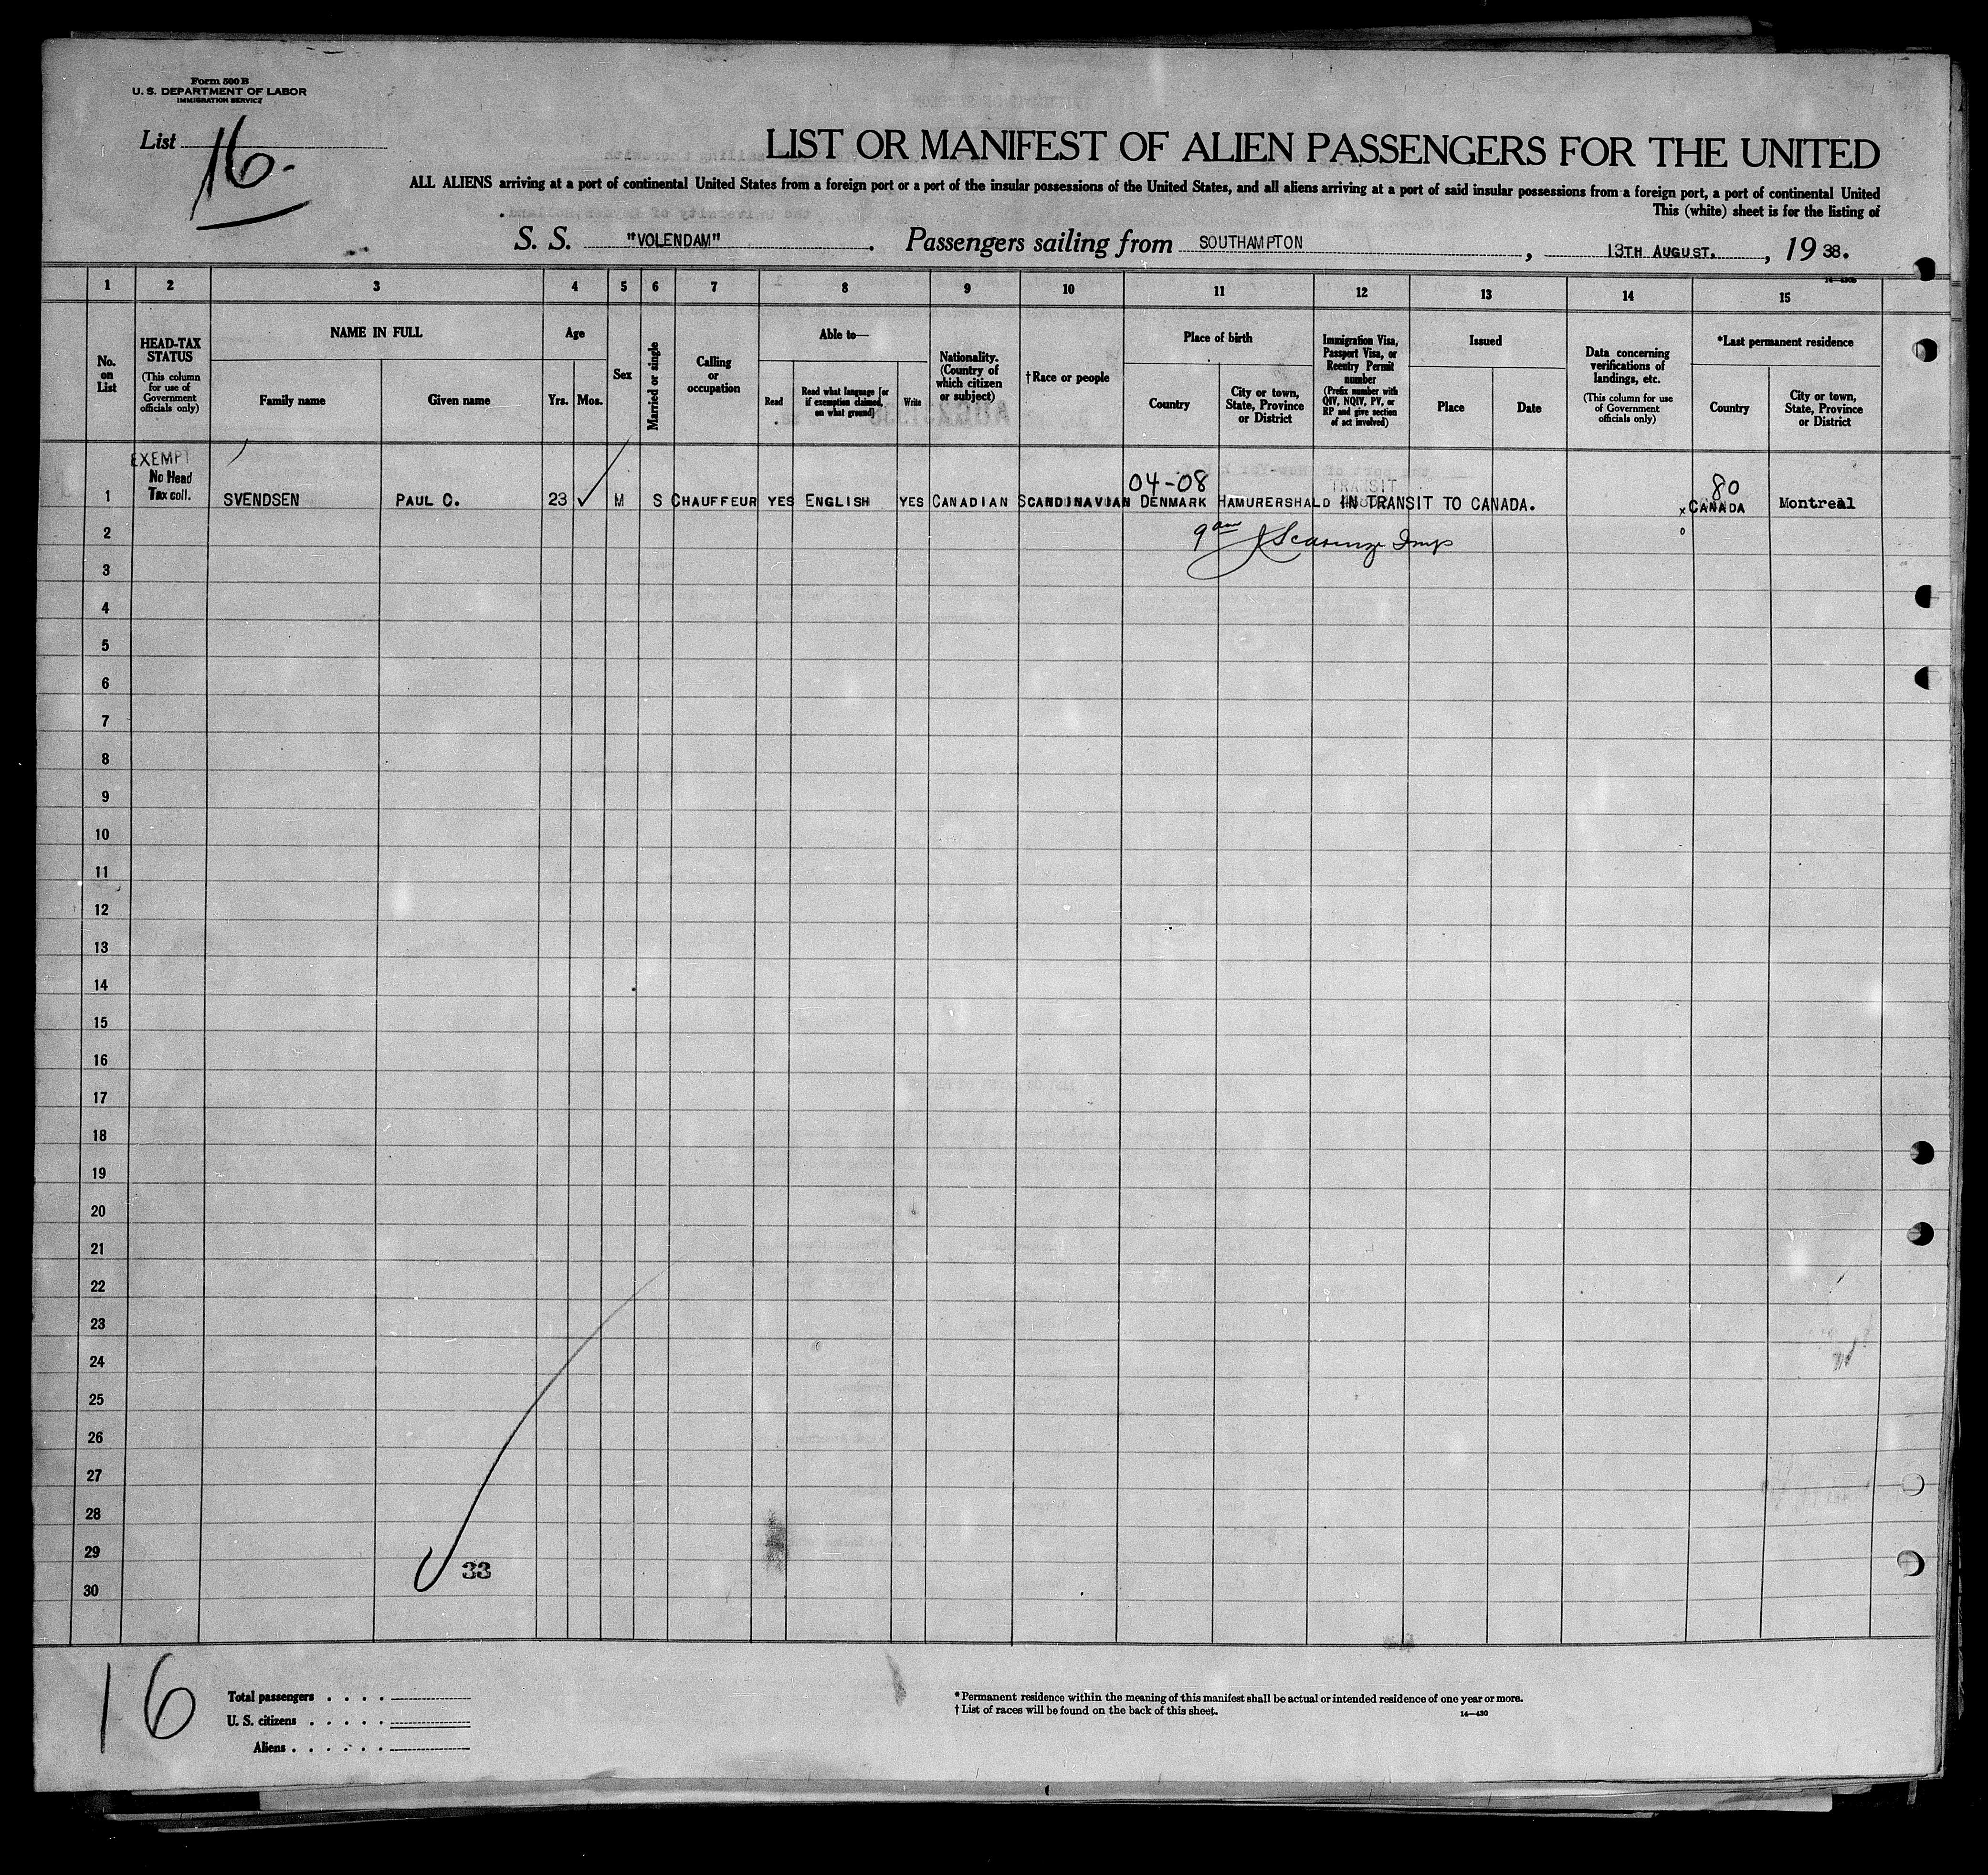 Form 500 B
U. S. DEPARTMENT OF LABOR
IMMIGRATION SERVICE
List 16.
LIST OR MANIFEST OF ALIEN PASSENGERS FOR THE UNITED
ALL ALIENS arriving at a port of continental United States from a foreign port or a port of the insular possessions of the United States, and all aliens arriving at a port of said insular possessions from a foreign port, a port of continental United
This (white) sheet is for the listing of
S. S. "VOLENDAM" . Passengers sailing from SOUTHAMPTON , 13TH AUGUST. , 19 38.
1 2 3 4 5 6 7 8 9 10 11 12 13 14 15
No. on List
HEAD-TAX STATUS
(This column for use of Government officials only)
NAME IN FULL
Family name
Given name
Age
Yrs.
Mos.
Sex
Married or single
Calling or occupation
Able to—
Read
Read what language [or if exemption claimed, on what ground]
Write
Nationality. (Country of which citizen or subject)
†Race or people
Place of birth
Country
City or town, State, Province or District
Immigration Visa, Passport Visa, or Reentry Permit number
(Prefix number with QIV, NQIV, PV, or RP and give section of act involved)
Issued
Place
Date
Data concerning verifications of landings, etc.
(This column for use of Government officials only)
*Last permanent residence
Country
City or town, State, Province or District
EXEMPT
No Head
Tax coll.
04-08
TRANSIT
80
1 SVENDSEN PAUL C. 23 ✓ M S CHAUFFEUR YES ENGLISH YES CANADIAN SCANDINAVIAN DENMARK HAMURERSHALD IN TRANSIT TO CANADA. x CANADA Montreal
2 9 am
3
4
5
6
7
8
9
10
11
12
13
14
15
16
17
18
19
20
21
22
23
24
25
26
27
28
29
33
30
16
Total passengers . . . .
U. S. citizens . . . . .
Aliens . . . . . .
*Permanent residence within the meaning of this manifest shall be actual or intended residence of one year or more.
†List of races will be found on the back of this sheet.
14—430